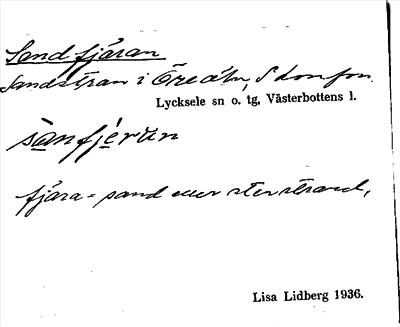 Sandfjäran
Sandstran i Öreälv, S
Lycksele sn o. tg, Västerbottens l.
sànfjèran
fjära = sand eller stenstrand,
Lisa Lidberg 1936.